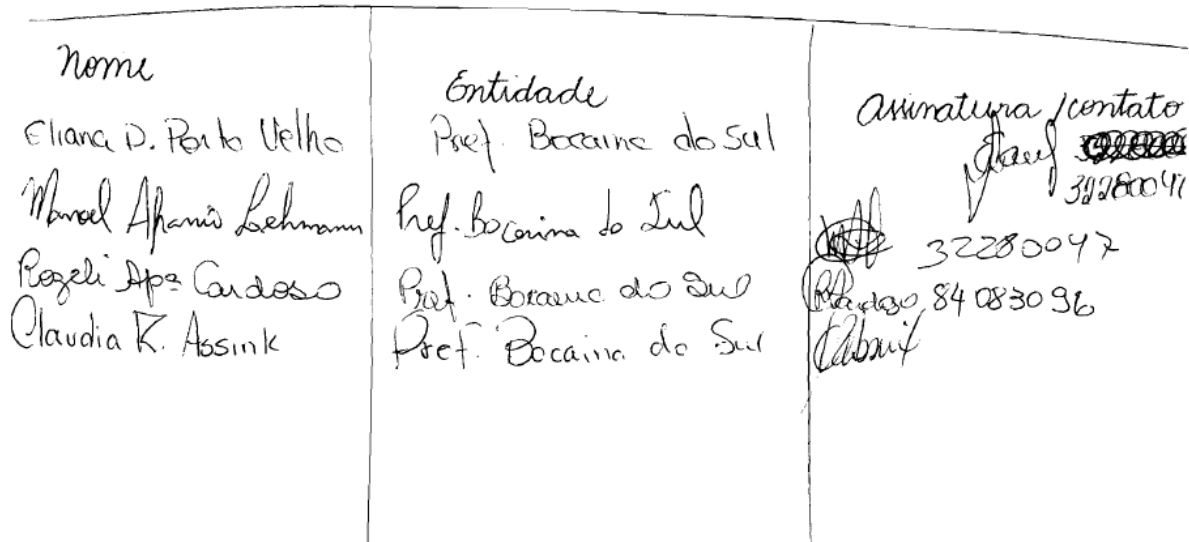 Nome Entidade Assinatura / contato
Eliana D. Porto Velho Pref. Bocaina do Sul
3228004
Manoel Lehmann Pref. Bocaina do Sul 32280047
Rozeli Apª Cardoso Pref. Bocaina do Sul RCardozo 84083096
Claudia K. Assink Pref. Bocaina do Sul